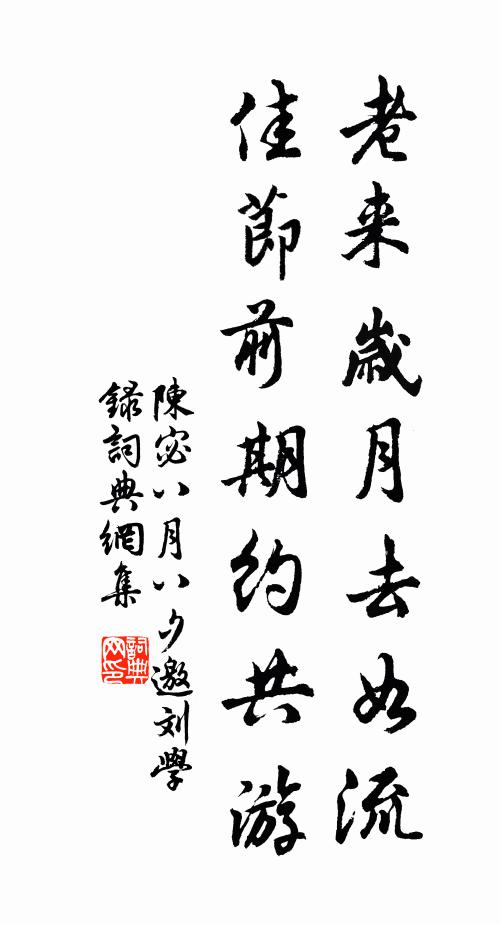 老来歲月去如流
佳節前期約共游
陳宓八月八夕邀刘學
錄詞典網集
詞典網印